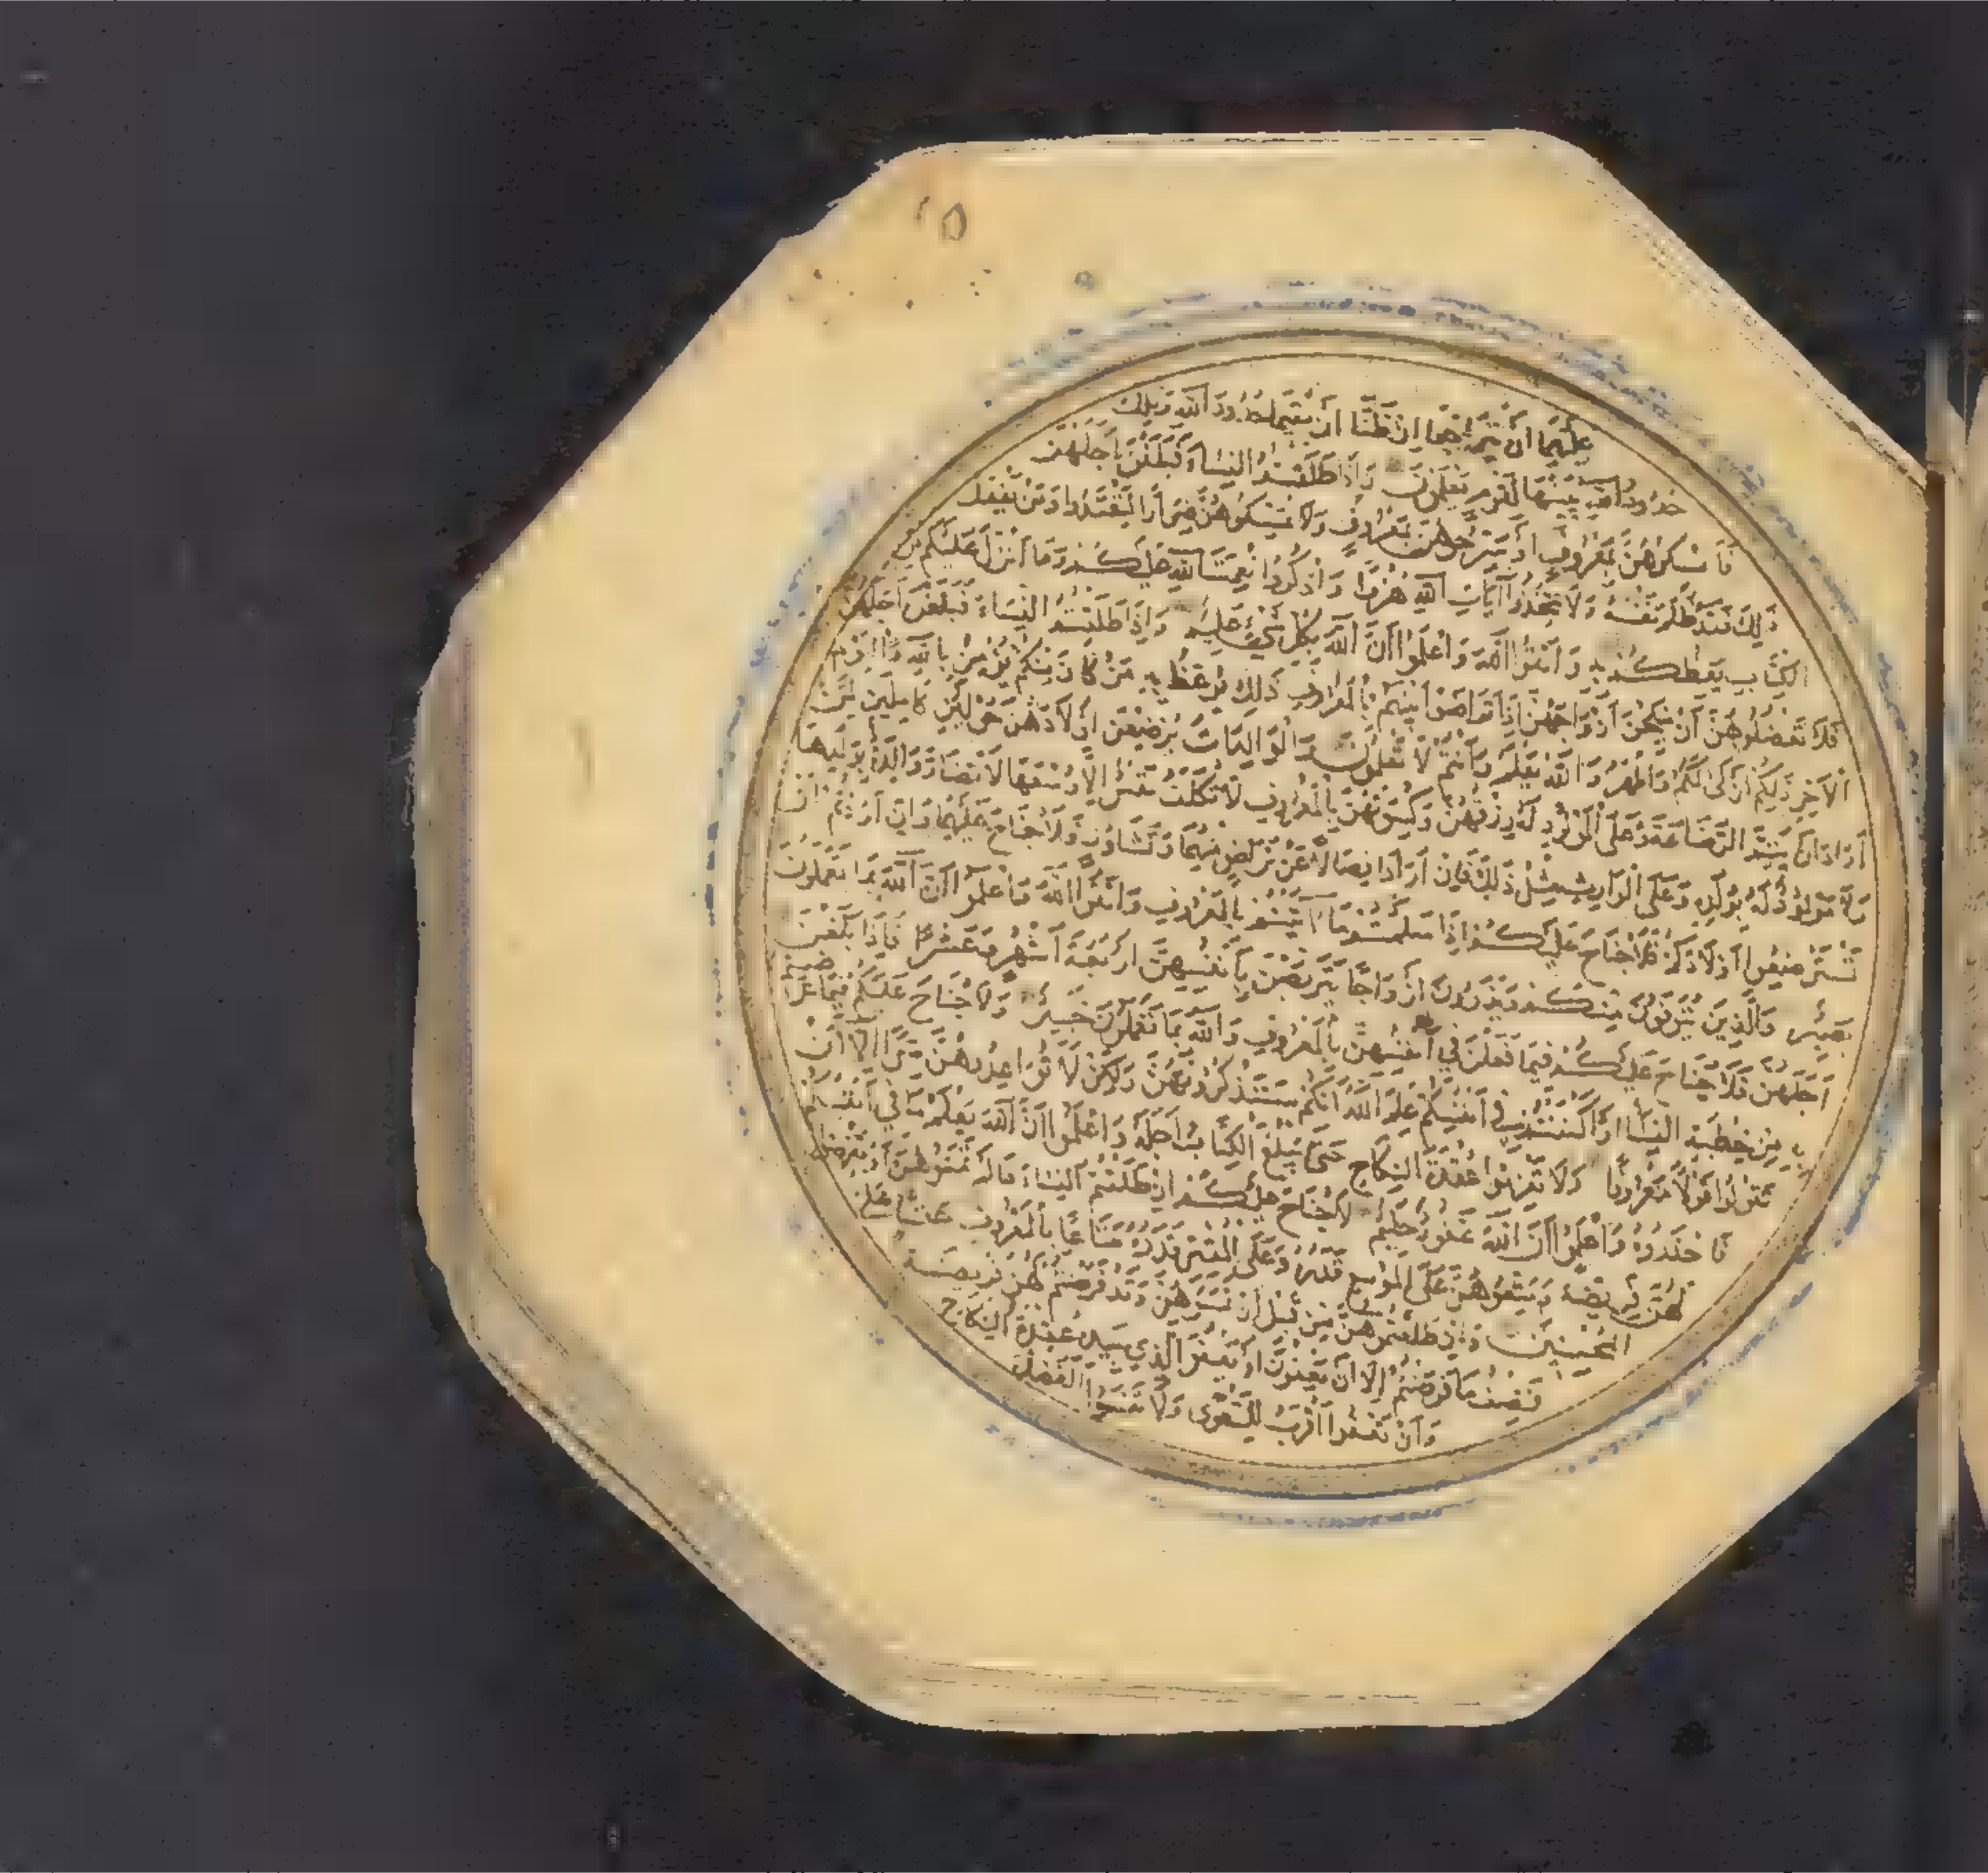 ١٥
عليهما ان يتراجعا ان ظنا ان يقيما حدود الله وتلك
حدود الله يبينها لقوم يعلمون واذا طلقتم النساء فبلغن اجلهن
فامسكوهن بمعروف او سرحوهن بمعروف ولا تمسكوهن ضرارا لتعتدوا ومن يفعل
ذلك فقد ظلم نفسه ولا تتخذوا آيات الله هزوا واذكروا نعمت الله عليكم وما انزل عليكم من
الكتاب يعظكم به واتقوا الله واعلموا ان الله بكل شيء عليم واذا طلقتم النساء فبلغن اجلهن
فلا تعضلوهن ان ينكحن ازواجهن اذا تراضوا بينهم بالمعروف ذلك يوعظ به من كان منكم يؤمن بالله واليوم
الآخر ذلكم ازكى لكم واطهر والله يعلم وانتم لا تعلمون والوالدات يرضعن اولادهن حولين كاملين لمن
اراد ان يتم الرضاعة وعلى المولود له رزقهن وكسوتهن بالمعروف لا تكلف نفس الا وسعها لا تضار والدة بولدها
ولا مولود له بولده وعلى الوارث مثل ذلك فان ارادا فصالا عن تراض منهما وتشاور فلا جناح عليهما وان اردتم ان
تسترضعوا اولادكم فلا جناح عليكم اذا سلمتم ما آتيتم بالمعروف واتقوا الله واعلموا ان الله بما تعملون
بصير والذين يتوفون منكم ويذرون ازواجا يتربصن بانفسهن اربعة اشهر وعشرا فاذا بلغن
اجلهن فلا جناح عليكم فيما فعلن في انفسهن بالمعروف والله بما تعملون خبير ولا جناح عليكم فيما عرضتم
به من خطبة النساء او اكننتم في انفسكم علم الله انكم ستذكرونهن ولكن لا تواعدوهن سرا الا ان
تقولوا قولا معروفا ولا تعزموا عقدة النكاح حتى يبلغ الكتاب اجله واعلموا ان الله يعلم ما في انفسكم
فاحذروه واعلموا ان الله غفور حليم لا جناح عليكم ان طلقتم النساء ما لم تمسوهن او تفرضوا
لهن فريضة ومتعوهن على الموسع قدره وعلى المقتر قدره متاعا بالمعروف حقا على
المحسنين وان طلقتموهن من قبل ان تمسوهن وقد فرضتم لهن فريضة
فنصف ما فرضتم الا ان يعفون او يعفو الذي بيده عقدة النكاح
وان تعفوا اقرب للتقوى ولا تنسوا الفضل